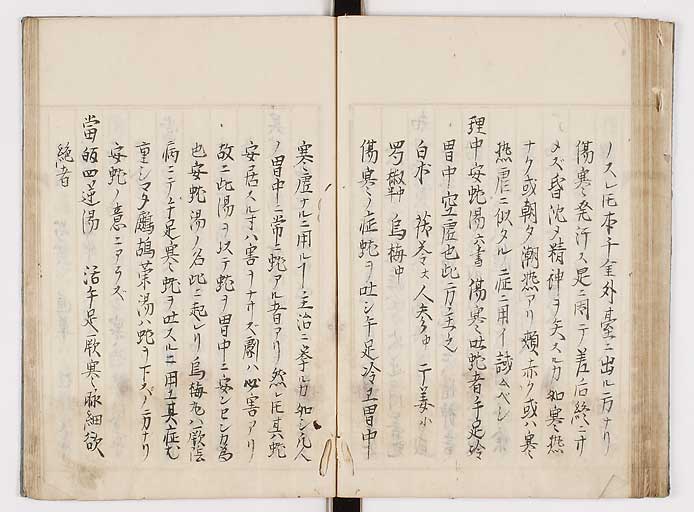 ノスレ𪜈本千金外臺ニ出ル方ナリ
傷寒発汗ス是ニ因テ差后終ニサ
メズ昏沈ノ精神ヲ失スルカ如寒熱
ナク或朝夕潮熱アリ頬赤ク或ハ寒
熱瘧ニ似タル症ニ用イ試ムベシ
理中安蛇湯 六書 傷寒吐蛇者手足冷
胃中空虚也此方主之
白朮 茯苓 大 人参 中 干姜 小
蜀椒 中 烏梅 中
傷寒ノ症蛇ヲ吐シ手足冷ヱ胃中
寒虚ナルニ用ル丁主治ニ挙ルカ如シ凡人
ノ胃中ニ常ニ蛇アル者アリ然レ𪜈其蛇
安居スル寸ハ害ヲナサス劇ハ必害アリ
故ニ此湯ヲ以テ蛇ヲ胃中ニ安ンセシムル為
也安蛇湯ノ名此ニ起レリ烏梅丸ハ厥陰
病ニテ手足寒蛇ヲ吐スルニ用ユ其症尤
重シマタ鷓鴣菜湯ハ蛇ヲ下スノ方ナリ
安蛇ノ意ニアラス
當皈四逆湯 治手足厥寒脉細欲
絶者